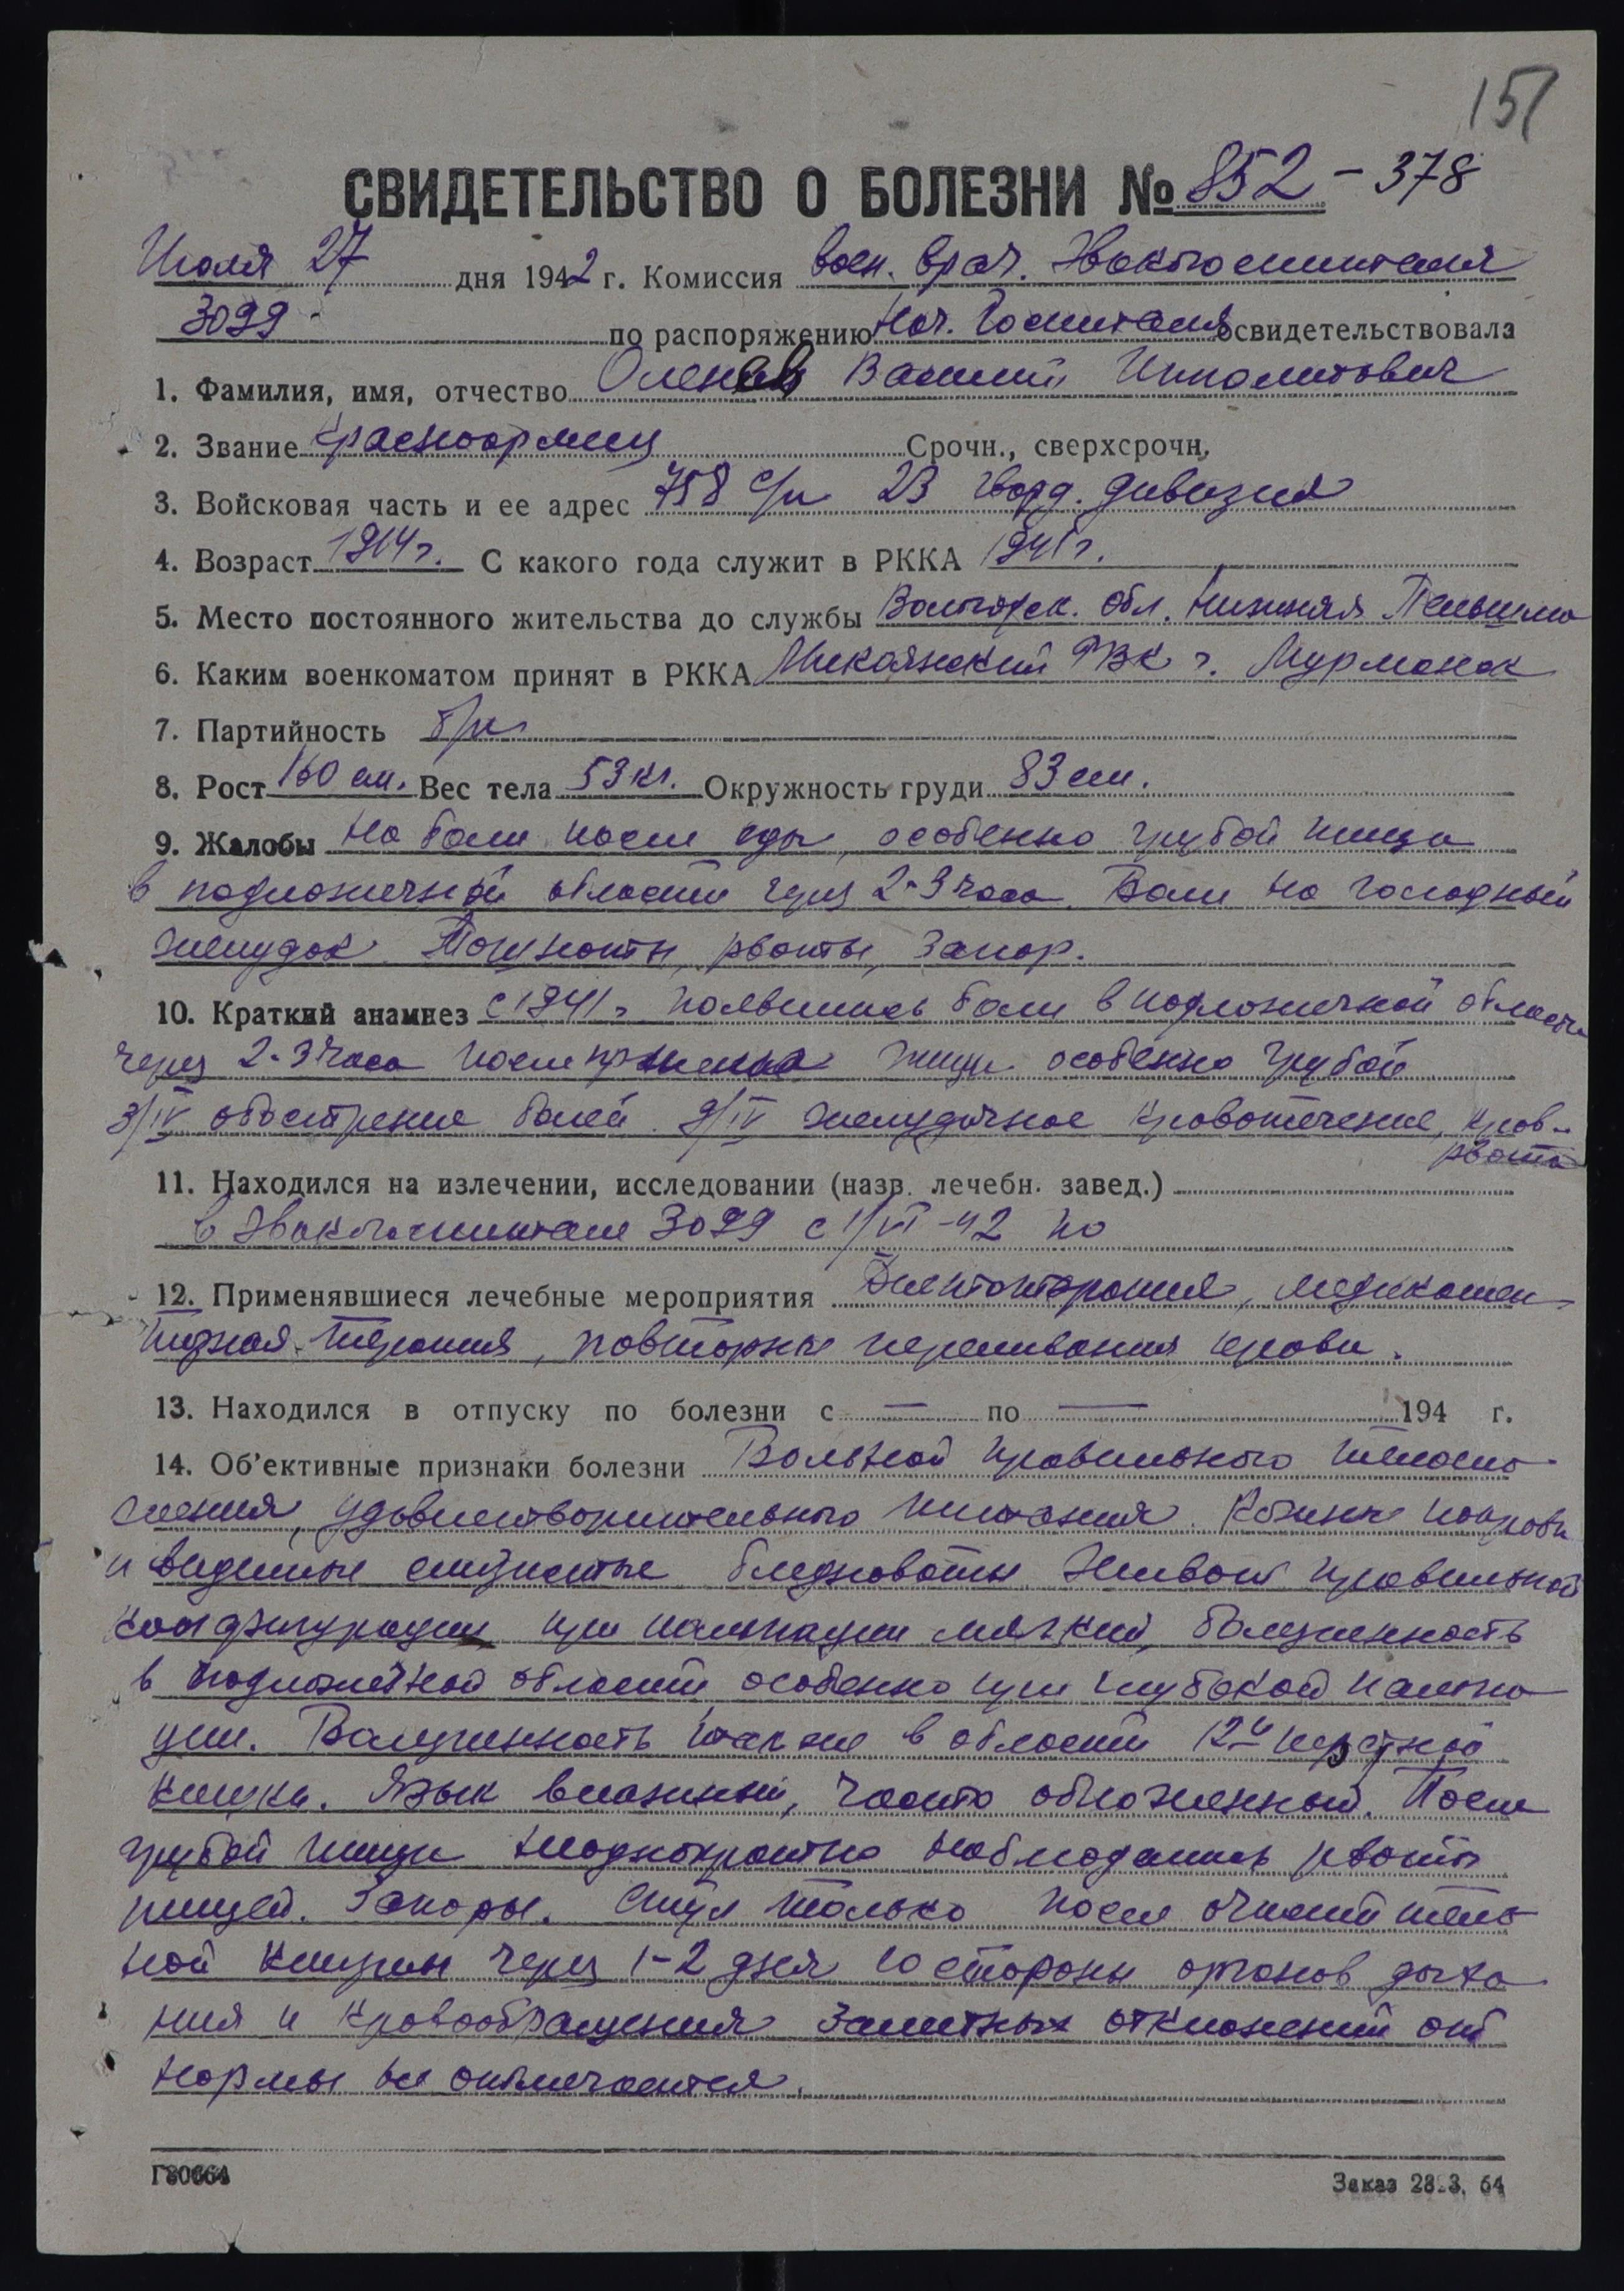 151
СВИДЕТЕЛЬСТВО О БОЛЕЗНИ № 852-378
Июля 27 дня 1942 г. Комиссия воен. врач. Эвакогоспиталя
3099 по распоряжению Нач. Госпиталя освидетельствовала
1. Фамилия, имя, отчество Оленев Василий Ипполитович
2. Звание красноармеец Срочн., сверхсрочн.
3. Войсковая часть и ее адрес 758 с/п 23 гвард. дивизия
4. Возраст 1914 г. С какого года служит в РККА 1941 г.
5. Место постоянного жительства до службы Вологодск. обл. Нижняя Пельшма
6. Каким военкоматом принят в РККА Микояновский РВК г. Мурманск
7. Партийность б/п
8. Рост 160 см. Вес тела 53 кг. Окружность груди 83 см.
9. Жалобы На боли после еды, особенно грубой пищи
в подложечной области через 2-3 часа. Боли на голодный
желудок. Тошноты, рвоты, запор.
10. Краткий анамнез с 1941 г появились боли в подложечной области
через 2-3 часа после принятия пищи особенно грубой
3/IV обострение болей. 9/IV желудочное кровотечение, кров-
рвота
11. Находился на излечении, исследовании (назв. лечебн. завед.)
в Эвакогоспитале 3099 с 1/VI-42 по
12. Применявшиеся лечебные мероприятия Диетотерапия, медикамен
тозная терапия, повторные переливания крови.
13. Находился в отпуску по болезни с — по — 194 г.
14. Об'ективные признаки болезни Больной правильного телосло-
жения, удовлетворительного питания. Кожные покровы
и видимые слизистые бледноваты. Живот правильной
конфигурации при пальпации мягкий, болезненность
в подложечной области особенно при глубокой пальпа
ции. Болезненность также в области 12и перстной
кишки. Язык влажный, часто обложенный. После
грубой пищи неоднократно наблюдались рвоты
пищей. Запоры. Стул только после очиститель
ной клизмы через 1-2 дня. Со стороны органов дыха
ния и кровообращения заметных отклонений от
нормы не отмечается.
Г80664
Заказ 28.3. 64